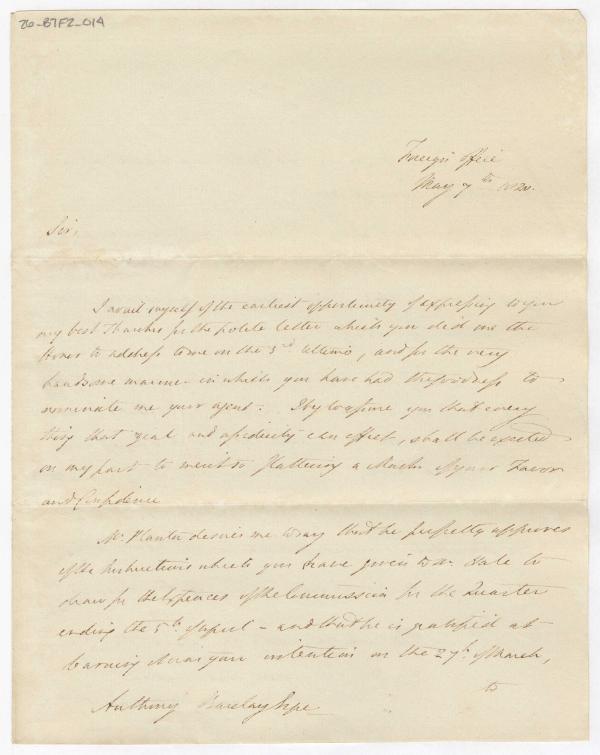 26-B7F2-014
Foreign Office
May 7th 1820.
Sir,
I avail myself of the earliest opportunity of expressing to you
my best Thanks for the polite letter which you did me the
Honor to address to me on the 3rd Ultimo, and for the very
handsome manner in which you have had the goodness to
nominate me your agent. I beg to assure you that every
thing that zeal and assiduity can effect, shall be exerted
on my part to merit so flattering a Mark of your Favor
and Confidence
Mr. Planta desires me to say that he perfectly approves
of the Instructions which you have given to Mr. Hale to
draw for the Expences of the Commission for the Quarter
ending the 5th of April - and that he is gratified at
learning it was your intention on the 27th of March,
to
Anthony Barclay Esqre